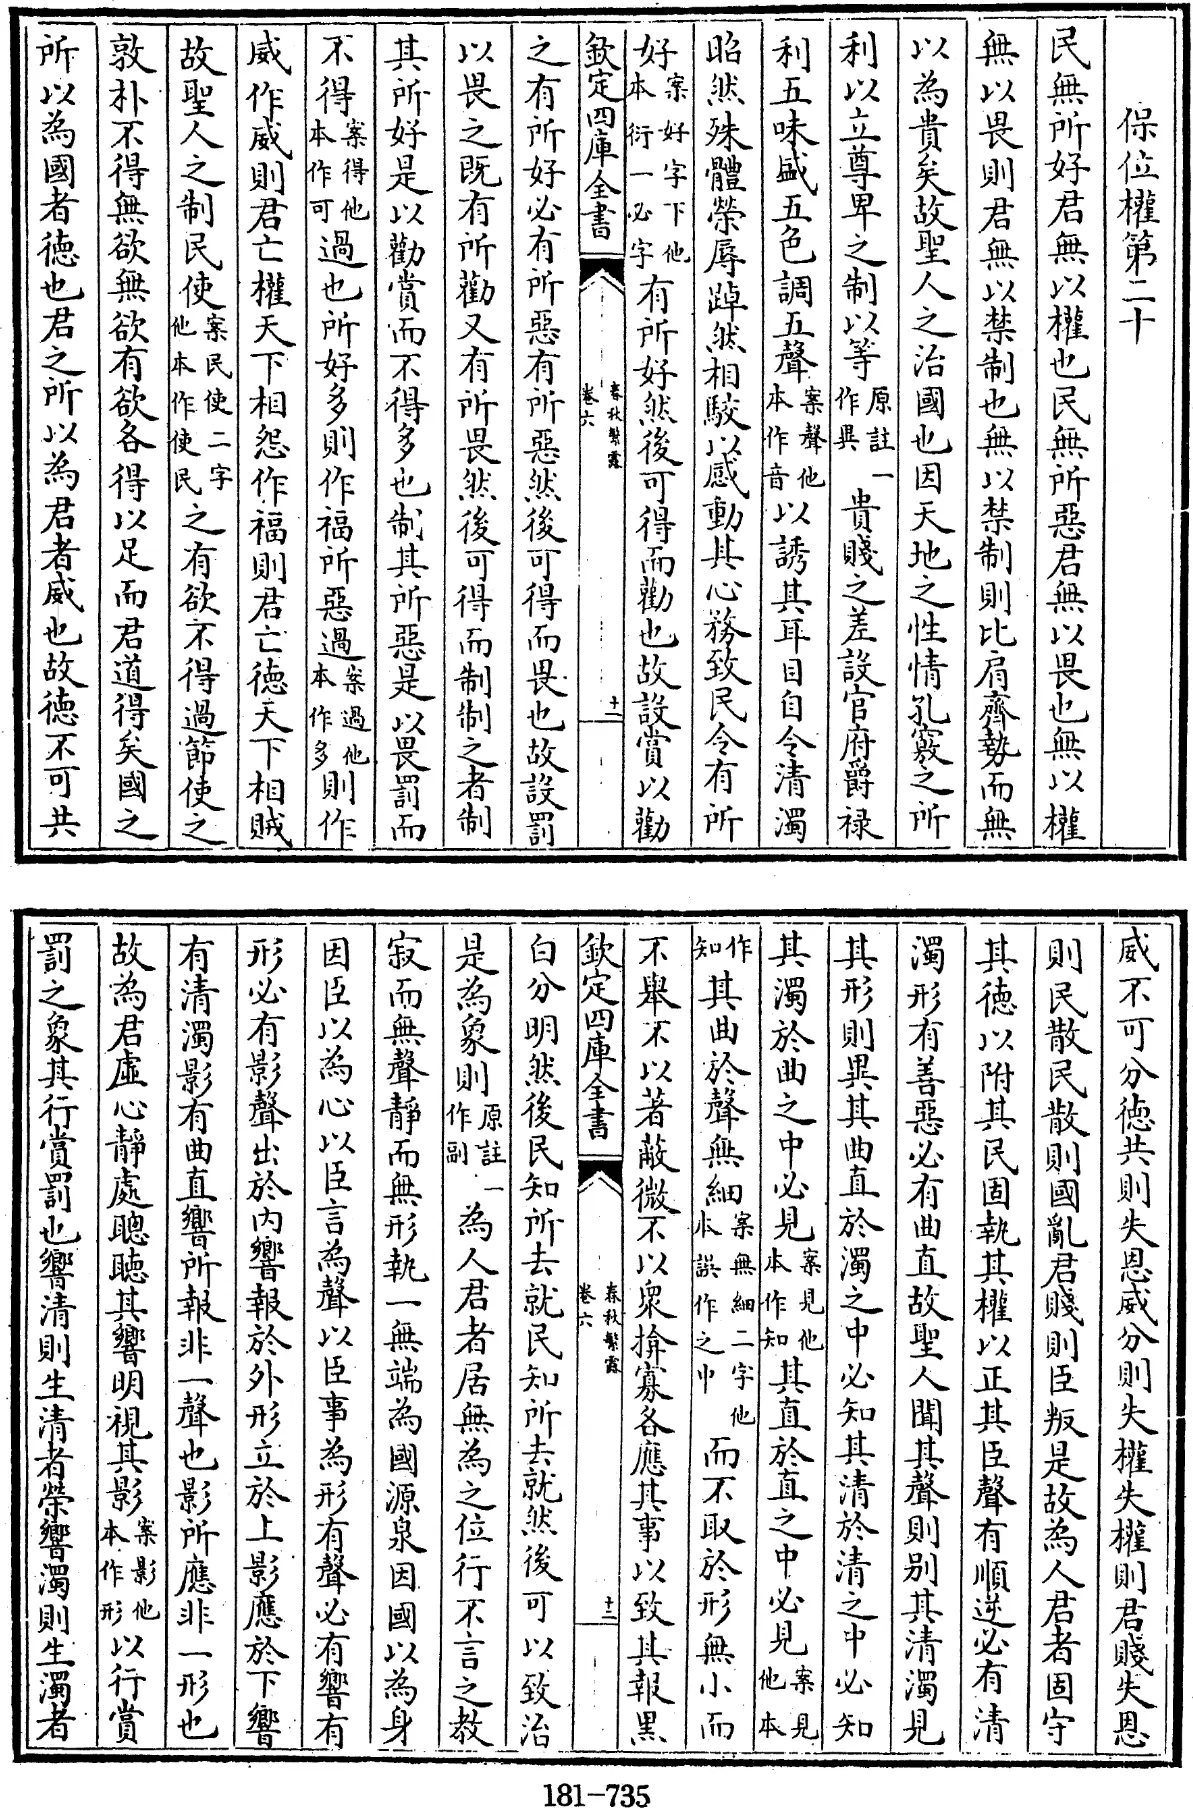 保位權第二十
民無所好君無以權也民無所惡君無以畏也無以權
無以畏則君無以禁制也無以禁制則比肩齊勢而無
以為貴矣故聖人之治國也因天地之性情孔竅之所
利以立尊卑之制以等原註一作異貴賤之差設官府爵祿
利五味盛五色調五聲案聲他本作音以誘其耳目自令清濁
昭然殊體榮辱踔然相駮以感動其心務致民令有所
好案好字下他本衍一必字有所好然後可得而勸也故設賞以勸
欽定四庫全書 春秋繁露 卷六 十一
之有所好必有所惡有所惡然後可得而畏也故設罰
以畏之既有所勸又有所畏然後可得而制制之者制
其所好是以勸賞而不得多也制其所惡是以畏罰而
不得案得他本作可過也所好多則作福所惡過案過他本作多則作
威作威則君亡權天下相怨作福則君亡德天下相賊
故聖人之制民使案民使二字他本作使民之有欲不得過節使之
敦朴不得無欲無欲有欲各得以足而君道得矣國之
所以為國者德也君之所以為君者威也故德不可共
威不可分德共則失恩威分則失權失權則君賤失恩
則民散民散則國亂君賤則臣叛是故為人君者固守
其德以附其民固執其權以正其臣聲有順逆必有清
濁形有善惡必有曲直故聖人聞其聲則别其清濁見
其形則異其曲直於濁之中必知其清於清之中必知
其濁於曲之中必見案見他本作知其直於直之中必見案見他本
作知其曲於聲無細案無細二字他本誤作之中而不取於形無小而
不舉不以著蔽微不以衆揜寡各應其事以致其報黑
欽定四庫全書 春秋繁露 卷六 十二
白分明然後民知所去就民知所去就然後可以致治
是為象則原註一作副為人君者居無為之位行不言之教
寂而無聲靜而無形執一無端為國源泉因國以為身
因臣以為心以臣言為聲以臣事為形有聲必有響有
形必有影聲出於内響報於外形立於上影應於下響
有清濁影有曲直響所報非一聲也影所應非一形也
故為君虛心靜處聰聽其響明視其影案影他本作形以行賞
罰之象其行賞罰也響清則生清者榮響濁則生濁者
181-735